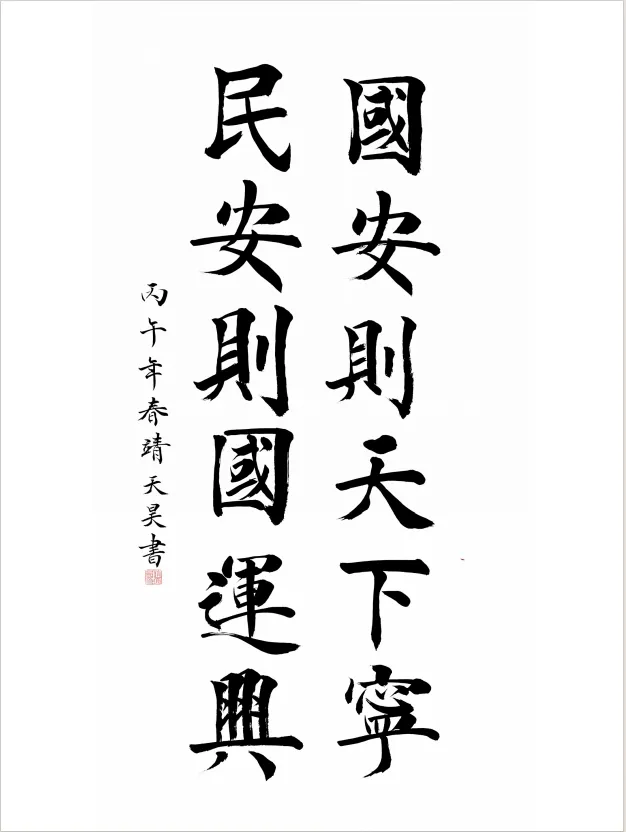 國安則天下寧
民安則國運興
丙午年春靖天昊書